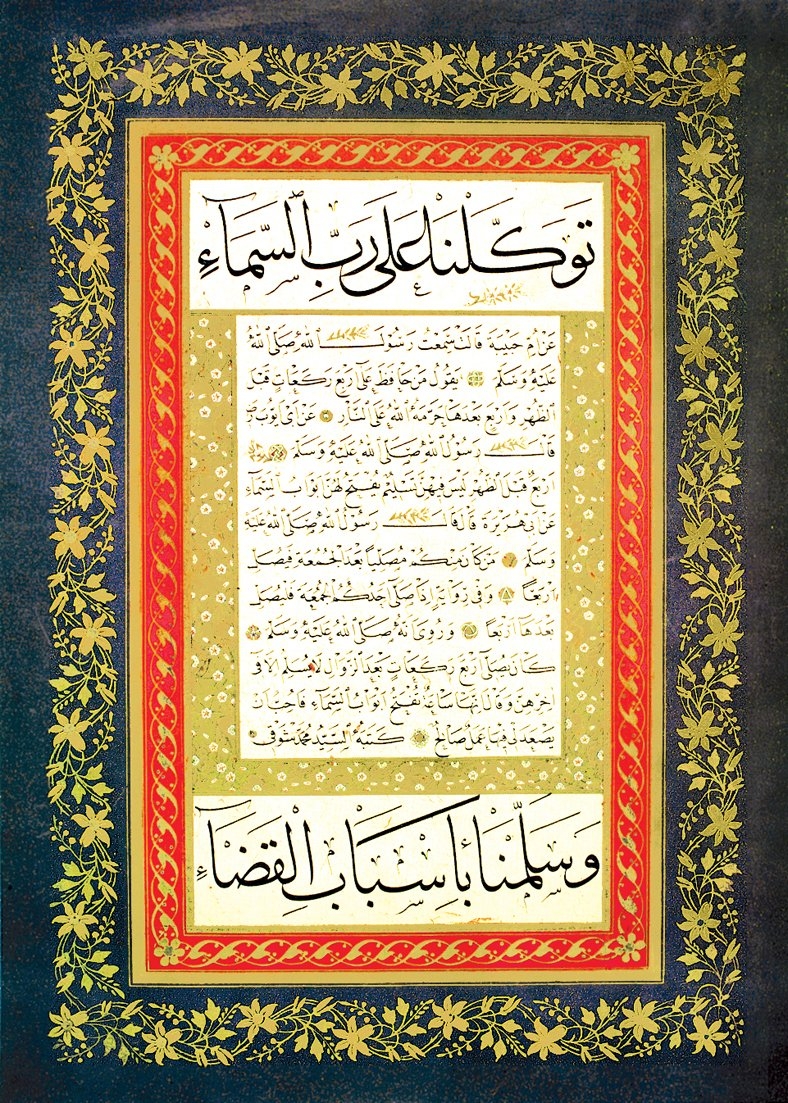 تَوَكَّلْنَا عَلَى رَبِّ السَّمَاءِ
عن ام حبيبة قالت سمعت رسول الله صلى الله
عليه وسلم يقول من حافظ على اربع ركعات قبل
الظهر واربع بعدها حرمه الله على النار عن ابى ايوب
قال رسول الله صلى الله عليه وسلم
اربع قبل الظهر ليس فيهن تسليم تفتح لهن ابواب السماء
عن ابى هريرة قال قال رسول الله صلى الله عليه
وسلم من كان منكم مصليا بعد الجمعة فيصلى
اربعا وفى رواية اذا صلى احدكم الجمعة فليصل
بعدها اربعا وروى انه صلى الله عليه وسلم
كان يصلى اربع ركعات بعد الزوال لا يسلم الا فى
اخرهن وقال انها ساعة تفتح ابواب السماء فاحب ان
يصعد لى فيها عمل صالح كتبه السيد محمد شوقى
وَسَلَّمْنَا بِأَسْبَابِ الْقَضَاءِ